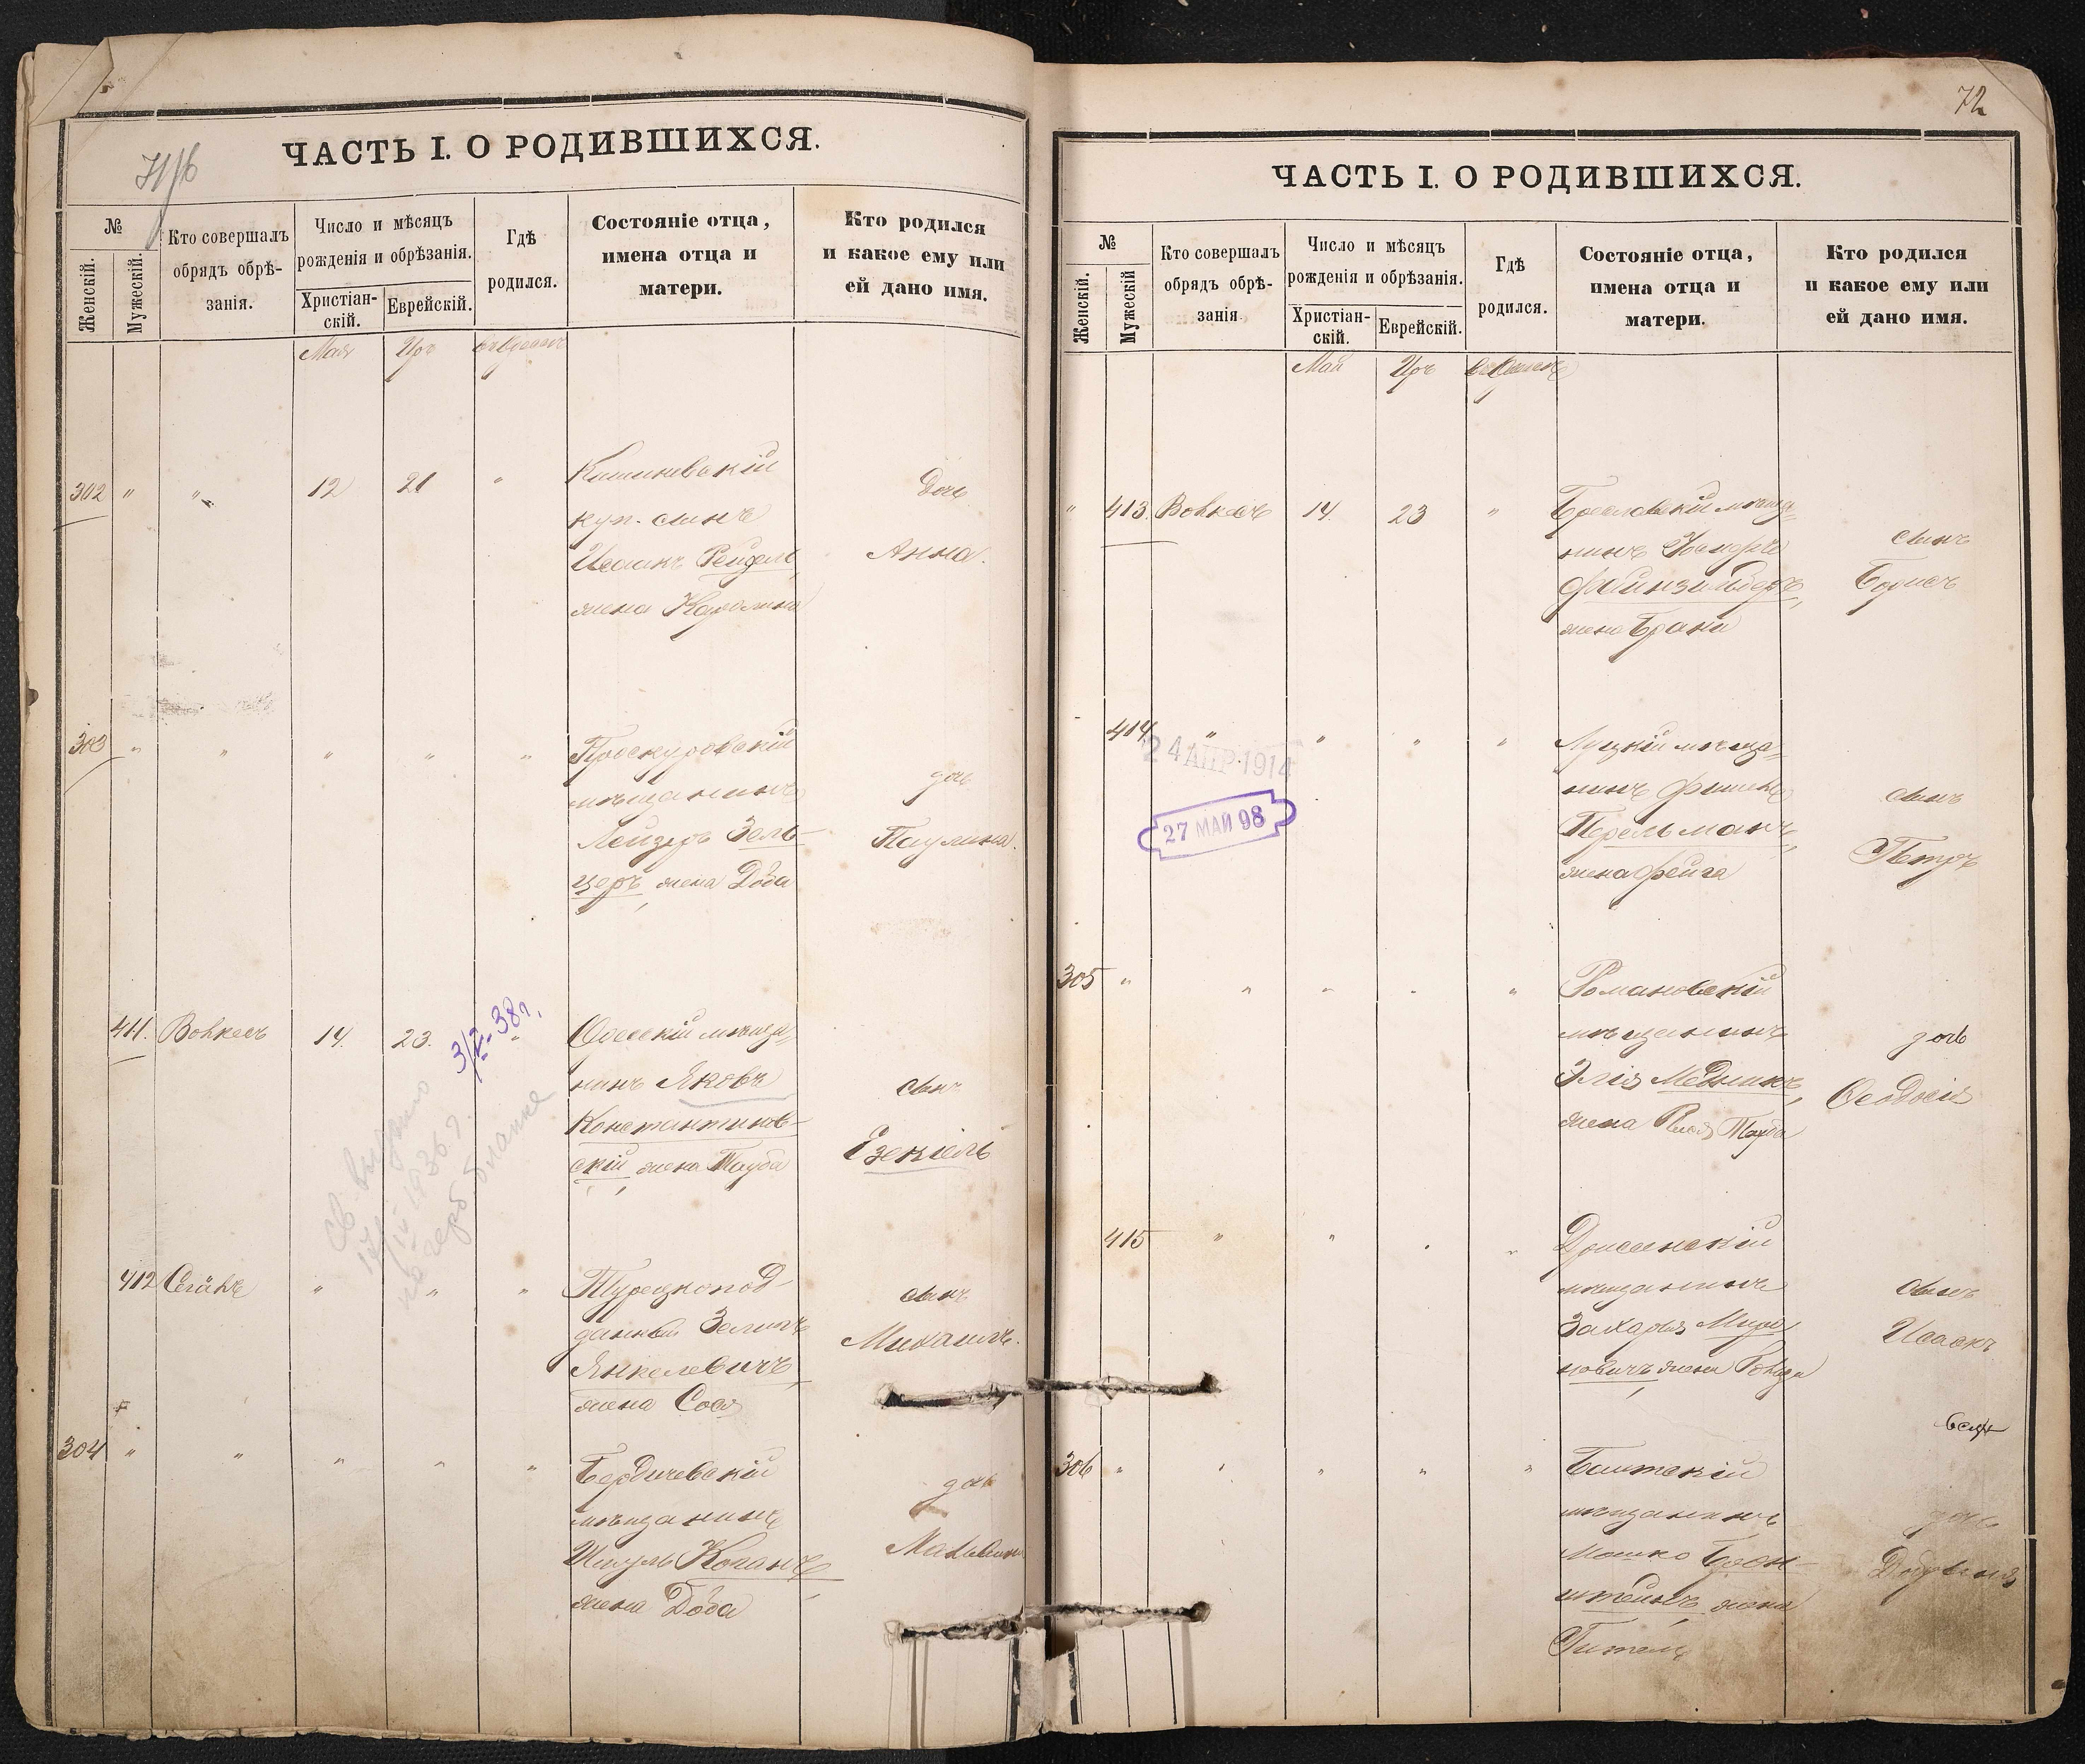 71/б
ЧАСТЬ I. О РОДИВШИХСЯ.
№
Женскій.
Мужескій.
Кто совершалъ
обрядъ обрѣ-
занія.
Число и мѣсяцъ
рожденія и обрѣзанія.
Христіан-
скій.
Еврейскій.
Гдѣ
родился.
Состояніе отца,
имена отца и
матери.
Кто родился
и какое ему или
ей дано имя.
Мая Иръ
302 " " 12 21 "
Кишиневскій
куп. сынъ
Исаакъ Рейдель,
жена Каролина
Дочь
Анна.
303 " " " " "
Проскуровскій
мѣщанинъ
Лейзеръ Зель-
церъ, жена Доба
дочь
Паулина.
411. 14. 23. "
3/V-38г.
Одесскій мѣща-
нинъ Яковъ
Константинов-
скій, жена Тауба
сынъ
Езекіель
св. выдано
1936 г.
на герб. бланке
412 " " "
Турецкопод-
данный Зелигъ
Янкелевичъ,
жена Сося
сынъ
Михаилъ.
304 " " " " "
Бердичевскій
мѣщанинъ
Шмуль Коганъ,
жена Доба
дочь
Мальвина
72
ЧАСТЬ I. О РОДИВШИХСЯ.
№
Женскій.
Мужескій
Кто совершалъ
обрядъ обрѣ-
занія.
Число и мѣсяцъ
рожденія и обрѣзанія.
Христіан-
скій.
Еврейскій.
Гдѣ
родился.
Состояніе отца,
имена отца и
матери.
Кто родился
и какое ему или
ей дано имя.
Май Иръ
" 413. 14. 23 "
Брацлавскій мѣща-
нинъ
Файнзильберъ,
жена Брана
сынъ
Борисъ
414. " " " "
24 АПР. 1914
27 МАИ 98
Луцкій мѣща-
нинъ Фишель
Перельманъ,
жена Фейга
сынъ
Петръ
305 " " " " "
Романовскій
мѣщанинъ
Элія Медникъ,
жена Рися Тауба
дочь
Ѳеодосія
415 " " " "
Дриссенскій
мѣщанинъ
Захарья Миро-
новичъ, жена
сынъ
Исаакъ
306 " " " " "
Балтскій
мѣщанинъ
Мошко Брон-
штейнъ, жена
Гитель
дочь